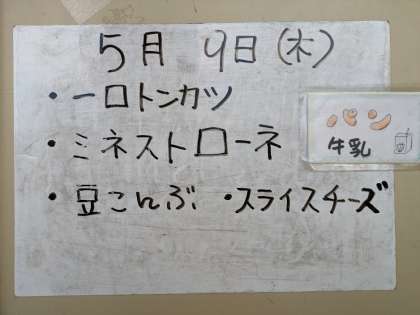 5月 9日(木)
・一口トンカツ
・ミネストローネ
・豆こんぶ ・スライスチーズ
パン
牛乳